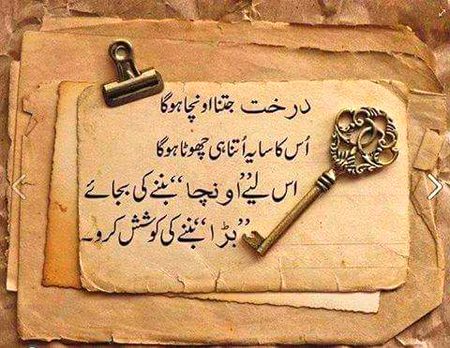 درخت جتنا اونچا ہوگا
اُس کا سایہ اُتنا ہی چھوٹا ہوگا
اس لیے ”اونچا“ بننے کی بجائے
”بڑا“ بننے کی کوشش کرو۔